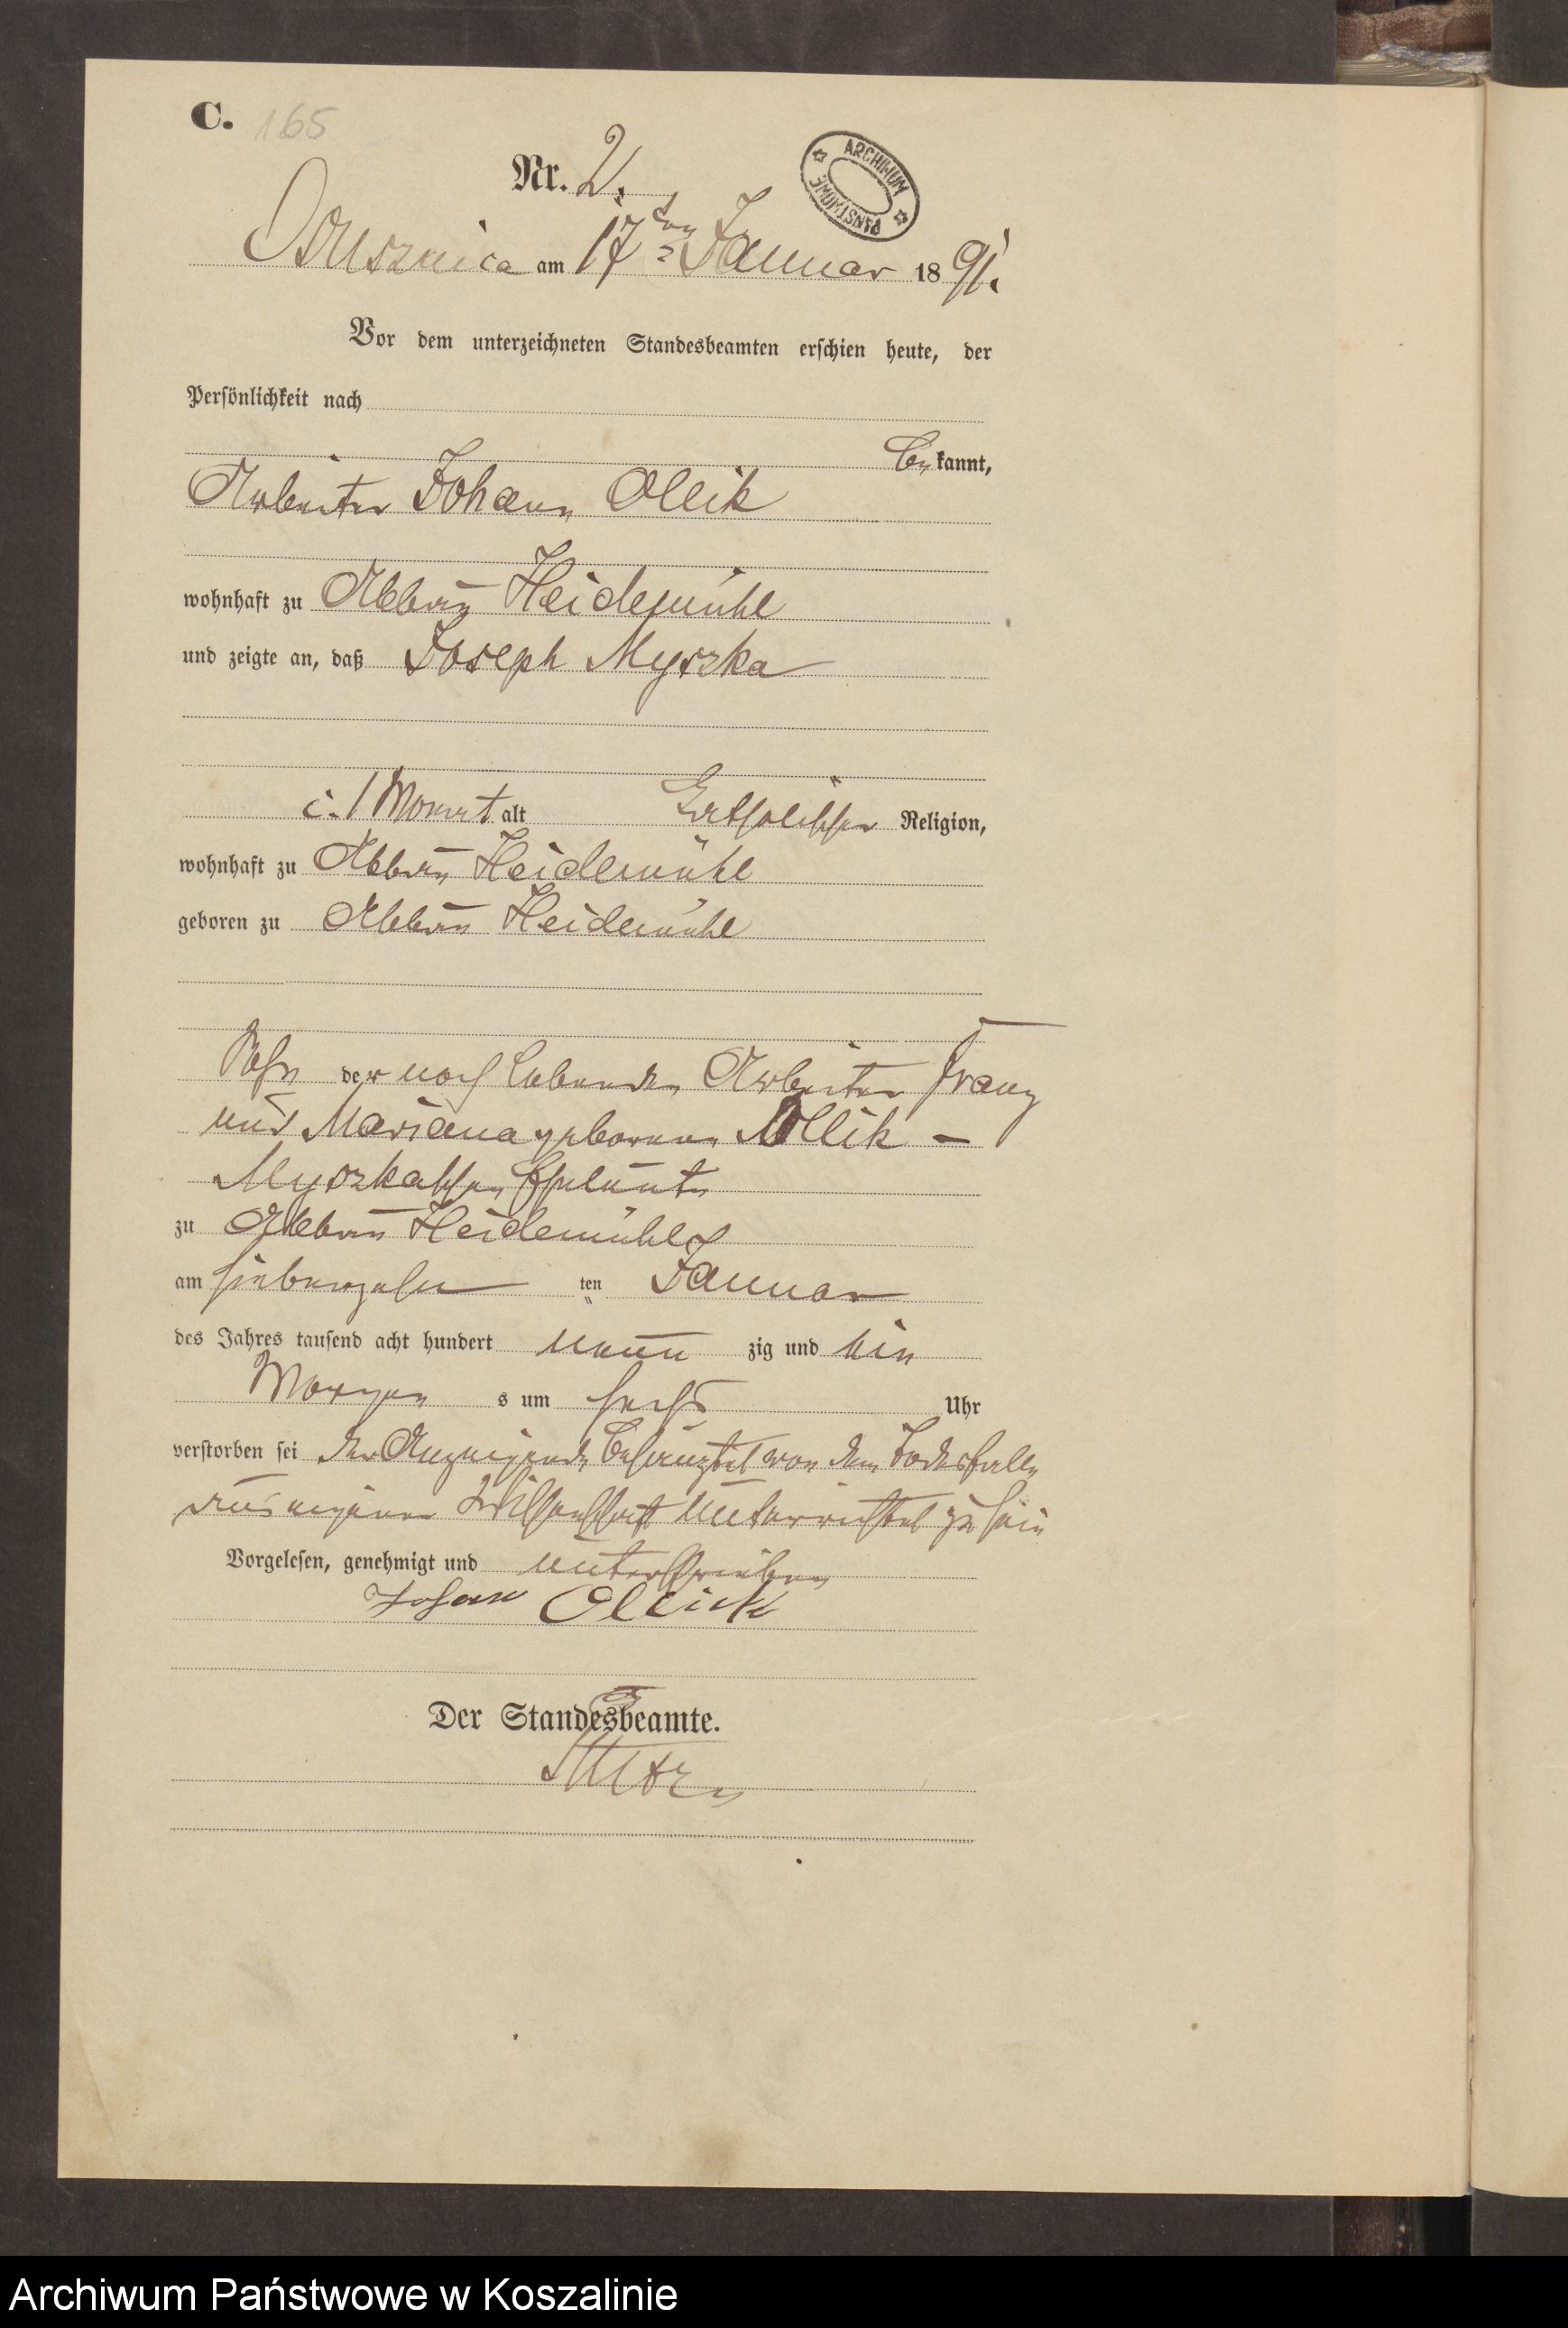 C. 165
Nr. 2.
ARCHIWUM PAŃSTWOWE
Ossusznica am 17ten Januar 1891.
Vor dem unterzeichneten Standesbeamten erschien heute, der
Persönlichkeit nach
bekannt,
Arbeiter Johann Ollik
wohnhaft zu Abbau Heidemühl
und zeigte an, daß Joseph Myszka
1 Monat alt katholischer Religion,
wohnhaft zu Abbau Heidemühl
geboren zu Abbau Heidemühl
Sohn der noch lebenden Arbeiter Franz
und Mariana geborenen Ollik -
Myszkaschen Eheleute
zu Abbau Heidemühl
am siebenzehn ten Januar
des Jahres tausend acht hundert neun zig und ein
Morgen s um sechs Uhr
verstorben sei der Anzeigende bescheinigt von dem Todesfalle
aus eigener Wissenschaft unterrichtet zu sein
Vorgelesen, genehmigt und unterschrieben
Johann Ollick
Der Standesbeamte.
Archiwum Państwowe w Koszalinie